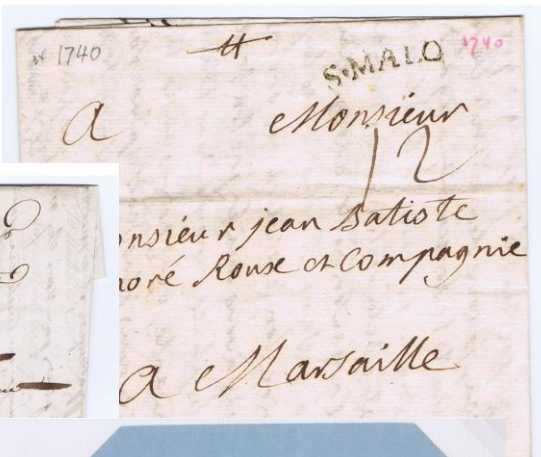 1740 S·MALO 1740
A Monsieur
12
onsieur jean Batiste
noré Roux et compagnie
a Marsaille